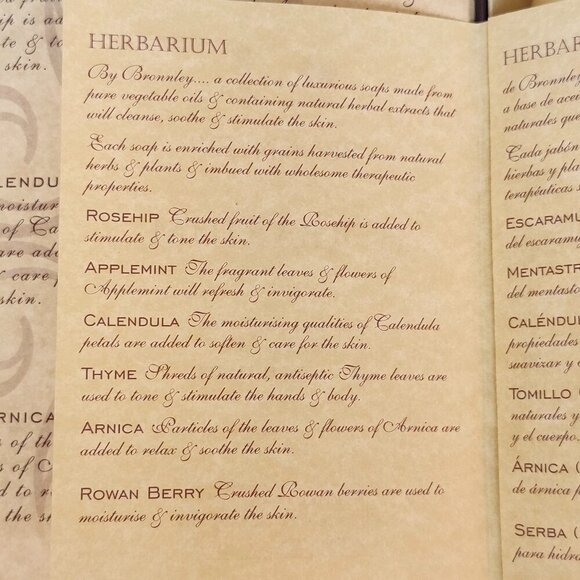 HERBARIUM
By Bronnley.... a collection of luxurious soaps made from
pure vegetable oils & containing natural herbal extracts that
will cleanse, soothe & stimulate the skin.
Each soap is enriched with grains harvested from natural
herbs & plants & imbued with wholesome therapeutic
properties.
ROSEHIP Crushed fruit of the Rosehip is added to
stimulate & tone the skin.
APPLEMINT The fragrant leaves & flowers of
Applemint will refresh & invigorate.
CALENDULA The moisturising qualities of Calendula
petals are added to soften & care for the skin.
THYME Shreds of natural, antiseptic Thyme leaves are
used to tone & stimulate the hands & body.
ARNICA Particles of the leaves & flowers of Arnica are
added to relax & soothe the skin.
ROWAN BERRY Crushed Rowan berries are used to
moisturise & invigorate the skin.
de Bronnley
a base de
naturales que
Cada jabón
hierbas y
terapéuticas
del
MENTASTR
del mentasto
CALÉNDU
propiedades
suavizar y
TOMILLO
naturales y
y el cuerpo.
ÁRNICA
de árnica
SERBA
para
skin.
& care
skin.
ARNICA
of the
of
the